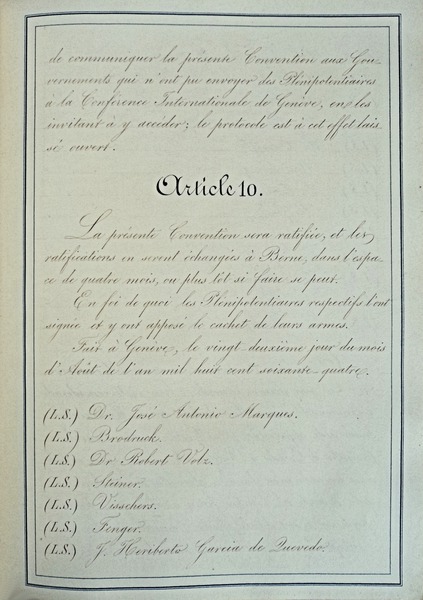 de communiquer la présente Convention aux Gou-
vernements qui n'ont pu envoyer des Plénipotentiaires
à la Conférence Internationale de Genève, en les
invitant à y accéder; le protocole est à cet effet lais-
sé ouvert.
Article 10.
La présente Convention sera ratifiée, et les
ratifications en seront échangées à Berne, dans l'espa-
ce de quatre mois, ou plus tôt si faire se peut.
En foi de quoi les Plénipotentiaires respectifs l'ont
signée et y ont apposé le cachet de leurs armes.
Fait à Genève, le vingt deuxième jour du mois
d'Août de l'an mil huit cent soixante-quatre.
(L.S.) Dr. José Antonio Marques.
(L.S.) Brodruck.
(L.S.) Dr Robert Volz.
(L.S.) Steiner.
(L.S.) Visschers.
(L.S.) Fenger.
(L.S.) J. Heriberto Garcia de Quevedo.